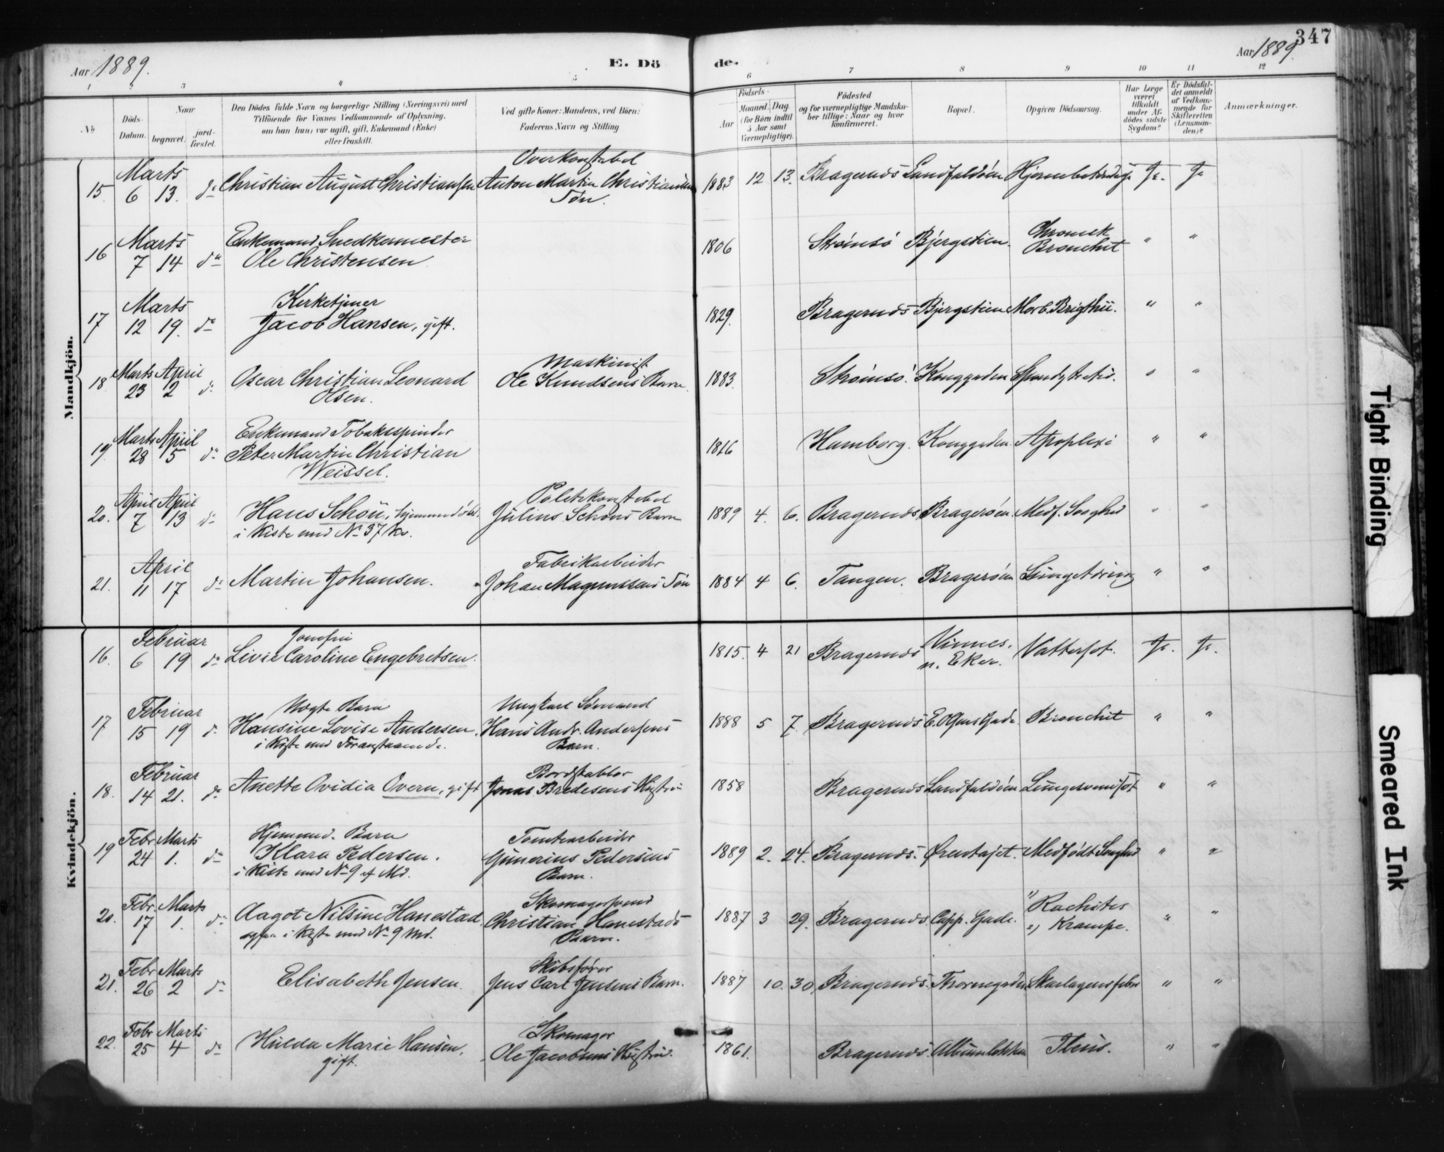 347
Aar 1889.
E. Dö
de.
Aar 1889.
1 2 3 4 5 6 7 8 9 10 11 12
No
Döds-Datum.
Naar
begravet.
jord-fæstet.
Den Dödes fulde Navn og borgerlige Stilling (Næringsvei) med
Tilföiende for Voxnes Vedkommende af Oplysning,
om han (hun) var ugift, gift, Enkemand (Enke)
eller fraskilt.
Ved gifte Koner: Mandens, ved Börn:
Faderens Navn og Stilling
Födsels-
Aar
Maaned Dag.
(for Börn indtil
5 Aar samt
Værnepligtige).
Födested
og for værnepligtige Mandska-
ber tillige: Naar og hvor
konfirmeret.
Bopæl.
Opgiven Dödsaarsag.
Har Læge
været
tilkaldt
under Af-
dödes sidste
Sygdom?
Er Dödsfal-
det anmeldt
af Vedkom-
mende for
Skifteretten
(Lensman-
den)?
Anmærkninger.
Mandkjön.
15. Marts 6 13. do Christian August Christiansen Overkonstabel Anton Martin Christiansens Søn. 1883 12 13. Bragernes Landfaldøen Hjernebetændelse Ja. Ja
16 Marts 7 14 do Enkemand Snedkermester Ole Christensen. 1806 Strømsø Bjergstien. Chronisk Bronchit " "
17 Marts 12 19. do Kirketjener Jacob Hansen, gift. 1829. Bragernes Bjergstien Morb. Brigthii. " "
18 Marts 23 April 2 do Oscar Christian Leonard Olsen. Maskinist Ole Knudsens Barn 1883. Strømsø. Konggaden " "
19 Marts 28 April 5 do Enkemand Tobakspinder Peter Martin Christian Weissel. 1816 Hamborg. Konggaden Apoplexi " "
20. April 7 April 13 do Hans Schøu, hjemmedøbt. i Kiste med No 37 Politikonstabel Julius Schøus Barn 1889 4. 6. Bragernes Bragerøen. Medf. Svaghed " "
21. April 11 17 do Martin Johansen. Fabrikarbeider Johan Magnussens Søn 1884 4 6. Tangen. Bragerøen " "
Kvindekjön.
16. Februar 6 19 do Jomfru Livie Caroline Engebretsen. 1815. 4 21 Bragernes Vinnes. n. Eker. Vattersot. Ja. Ja.
17 Februar 15 19 do Uægte Barn Hansine Lovise Andersen. i Kiste med Foranstaaende. Ungkarl Sømand Hans Andr. Andersens Barn. 1888 5 7. Bragernes E. Olsens Gade Bronchit " "
18. Februar 14 21. do Anette Ovidia Overn, gift Bordstabler Jonas Bredesens Hustru 1858 Bragernes Landfaldøen Lungesvindsot " "
19 Febr 24 Marts 1. do Hjemmed. Barn Klara Pedersen. i Kiste med No 9 af Md. Tomtearbeider Gunerius Pedersens Barn. 1889 2. 24. Bragernes. Ørentajet. Medfødt Svaghed " "
20. Febr. 17 Marts 1. do Aagot Nilsine Hanestad. i Kiste med No 9 Md. Skomagersvend Christian Hanestads Barn. 1887 3 29. Bragernes Capp. Gade. 1) Rachites 2) Krampe. " "
21. Febr 26 Marts 2 do Elisabeth Jensen. Skibsfører Jens Carl Jensens Barn. 1887 10. 30. Bragernes. Thornegaden Skarlagensfeber " "
22. Febr 25 Marts 4 do Hulda Marie Hansen. gift. Skomager Ole Jacobsens Hustru. 1861. Bragernes. Albumløkken Ileus. " "
Tight Binding
Smeared Ink